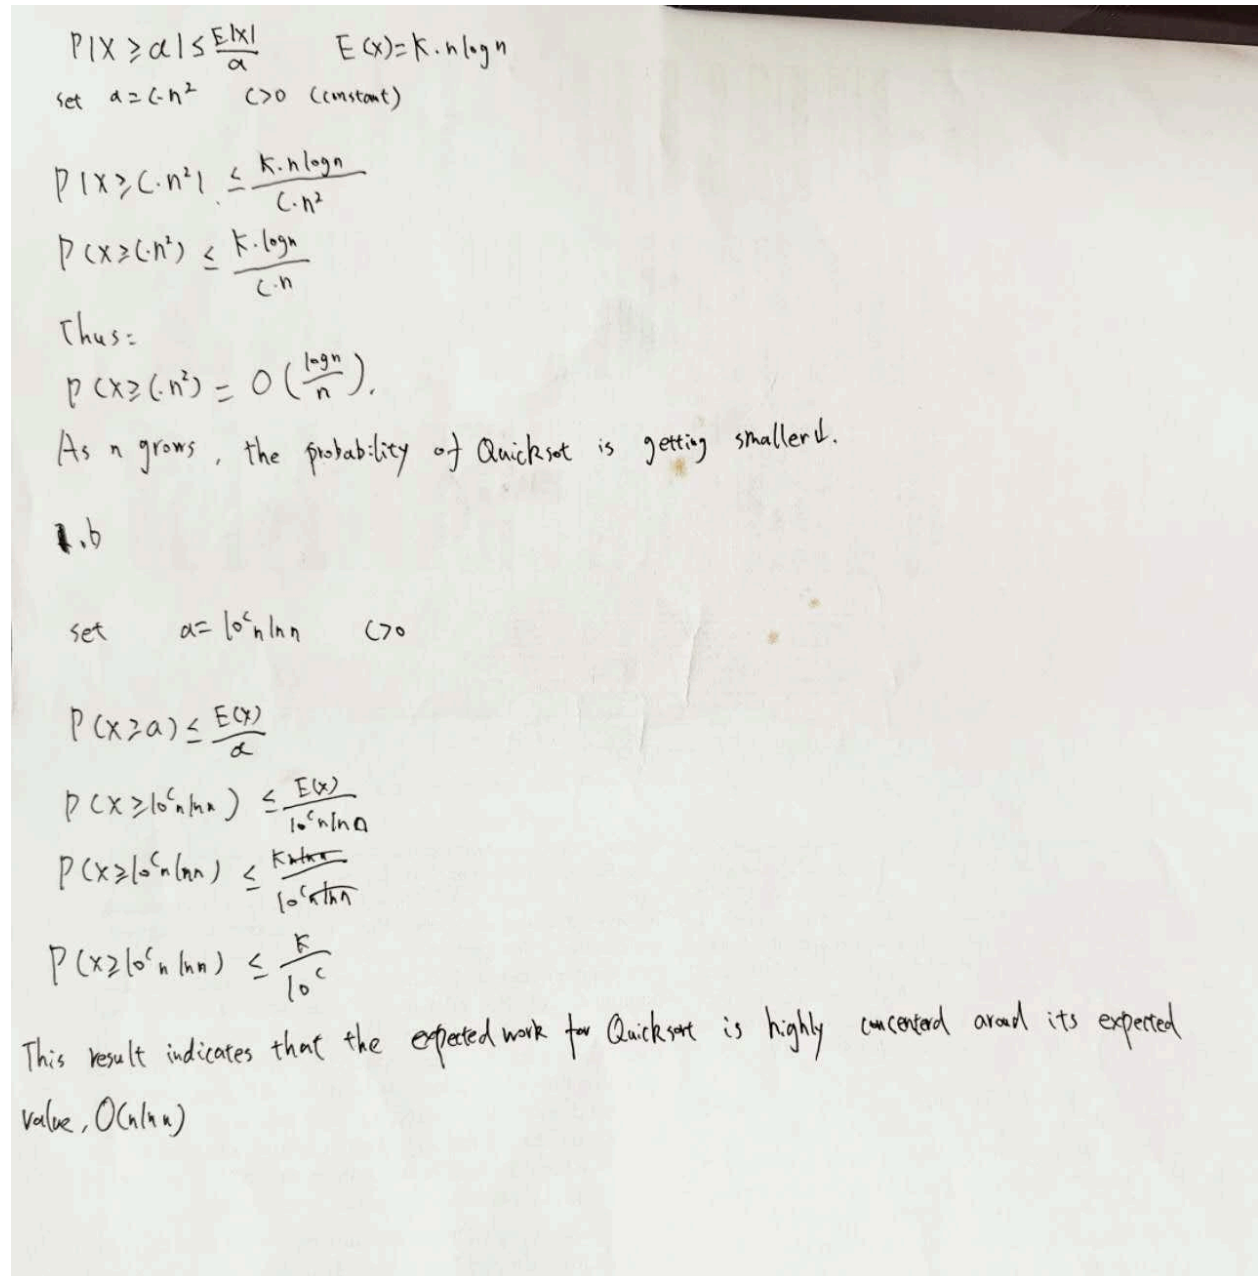 P|X ≥ a| ≤ E|X|/a E(x)=K·nlogn
set a=C·n² C>0 (constant)
P|X≥C·n²| ≤ K·nlogn/C·n²
P(X≥C·n²) ≤ K·logn/C·n
Thus:
P(X≥C·n²) = O(logn/n).
As n grows, the probability of Quicksot is getting smaller↓.
1.b
set a= 10ᶜnlnn C>0
P(X≥a) ≤ E(X)/a
P(X≥10ᶜnlnn) ≤ E(x)/10ᶜnlnn
P(X≥10ᶜnlnn) ≤ Knlnn/10ᶜnlnn
P(X≥10ᶜnlnn) ≤ K/10ᶜ
This result indicates that the expected work for Quicksort is highly concenterd aroud its expected
value, O(nlnn)